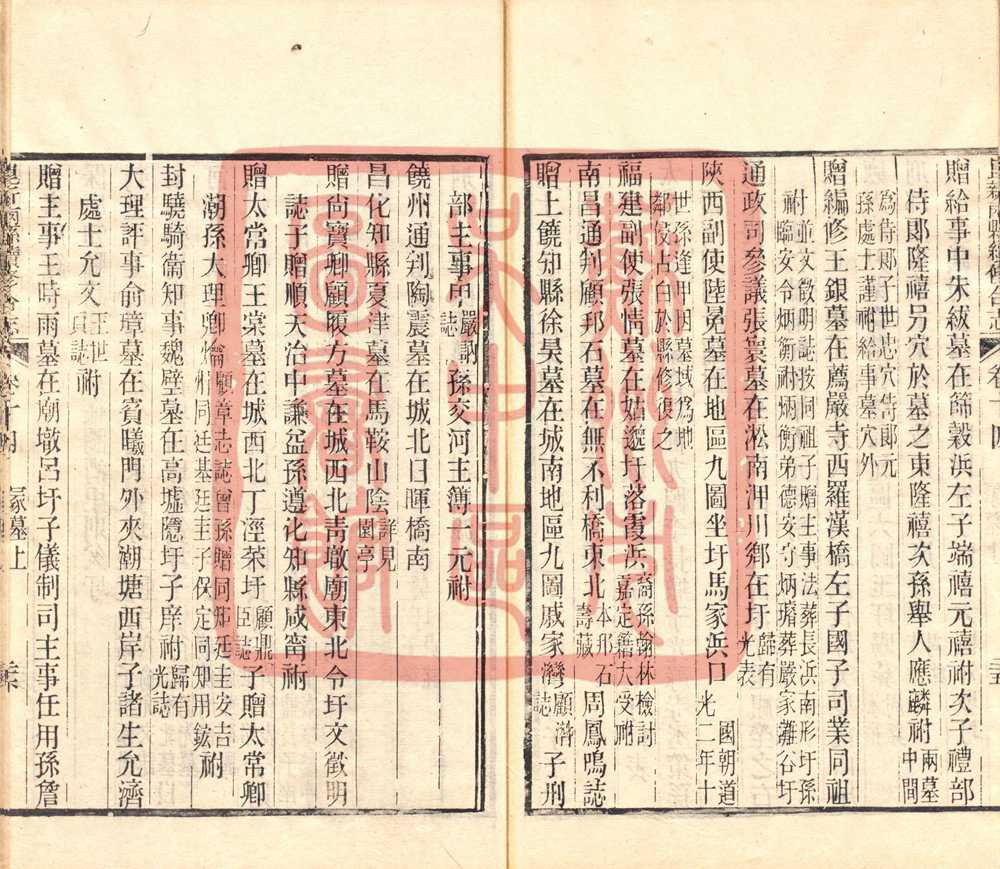 贈給事中朱紱墓在篩穀浜左子端禧元禧祔次子禮部
侍郎隆禧另穴於墓之東隆禧次孫舉人應麟祔兩墓中間
為侍郎子世忠穴侍郎元孫處士謹祔給事墓穴外
贈編修王銀墓在薦嚴寺西羅漢橋左子國子司業同祖
祔並文徵明誌按同祖子贈主事法葬長浜南形圩孫臨安令炳衡祔炳衡弟德安守炳璿葬嚴家灕谷圩
通政司參議張寰墓在淞南浬川鄉在圩歸有光表
陝西副使陸冕墓在地區九圖坐圩馬家浜口國朝道光二年十
世孫逢甲因墓域為地鄰侵占白於縣修復之
福建副使張情墓在姑邈圩落霞浜裔孫翰林檢討嘉定籍大受祔
南昌通判顧邦石墓在無不利橋東北本邢石壽藏周鳳鳴誌
贈上饒知縣徐昊墓在城南地區九圖戚家灣顧濟誌子刑
部主事申嚴訥誌孫交河主簿一元祔
饒州通判陶震墓在城北日暉橋南
昌化知縣夏津墓在馬鞍山陰詳見園亭
贈尚寶卿顧履方墓在城西北青墩廟東北令圩文徵明
誌子贈順天治中謙盆孫遵化知縣咸甯祔
贈太常卿王棠墓在城西北丁涇荣圩顧鼎臣誌子贈太常卿
潮孫大理卿倫顧章志誌曾孫贈同知廷圭安吉州同廷基廷圭子保定同知用鈜祔
封驍騎衛知事魏壁墓在高墟隱圩子庠祔歸有光誌
大理評事俞璋墓在賓曦門外夾潮塘西岸子諸生允濟
處士允文王世貞誌祔
贈主事王時雨墓在廟墩呂圩子儀制司主事任用孫詹
卷十四
冢墓上